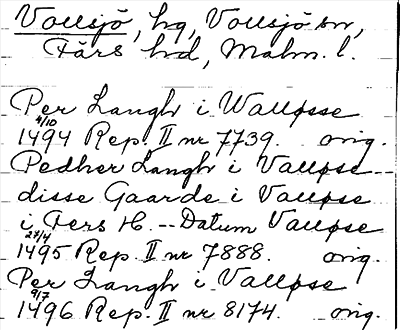 Vollsjö, hg, Vollsjö sn,
Färs hd, Malm. l.
Per Langh i Walløsse
4/10
1494 Rep. II nr 7739. orig.
Pedher Langh i Valløse --
disse Gaarde i Valløse
i Fers H. -- Datum Valløse
27/4
1495 Rep. II nr 7888. orig.
Per Langh i Valløse
9/7
1496 Rep. II nr 8174. orig.